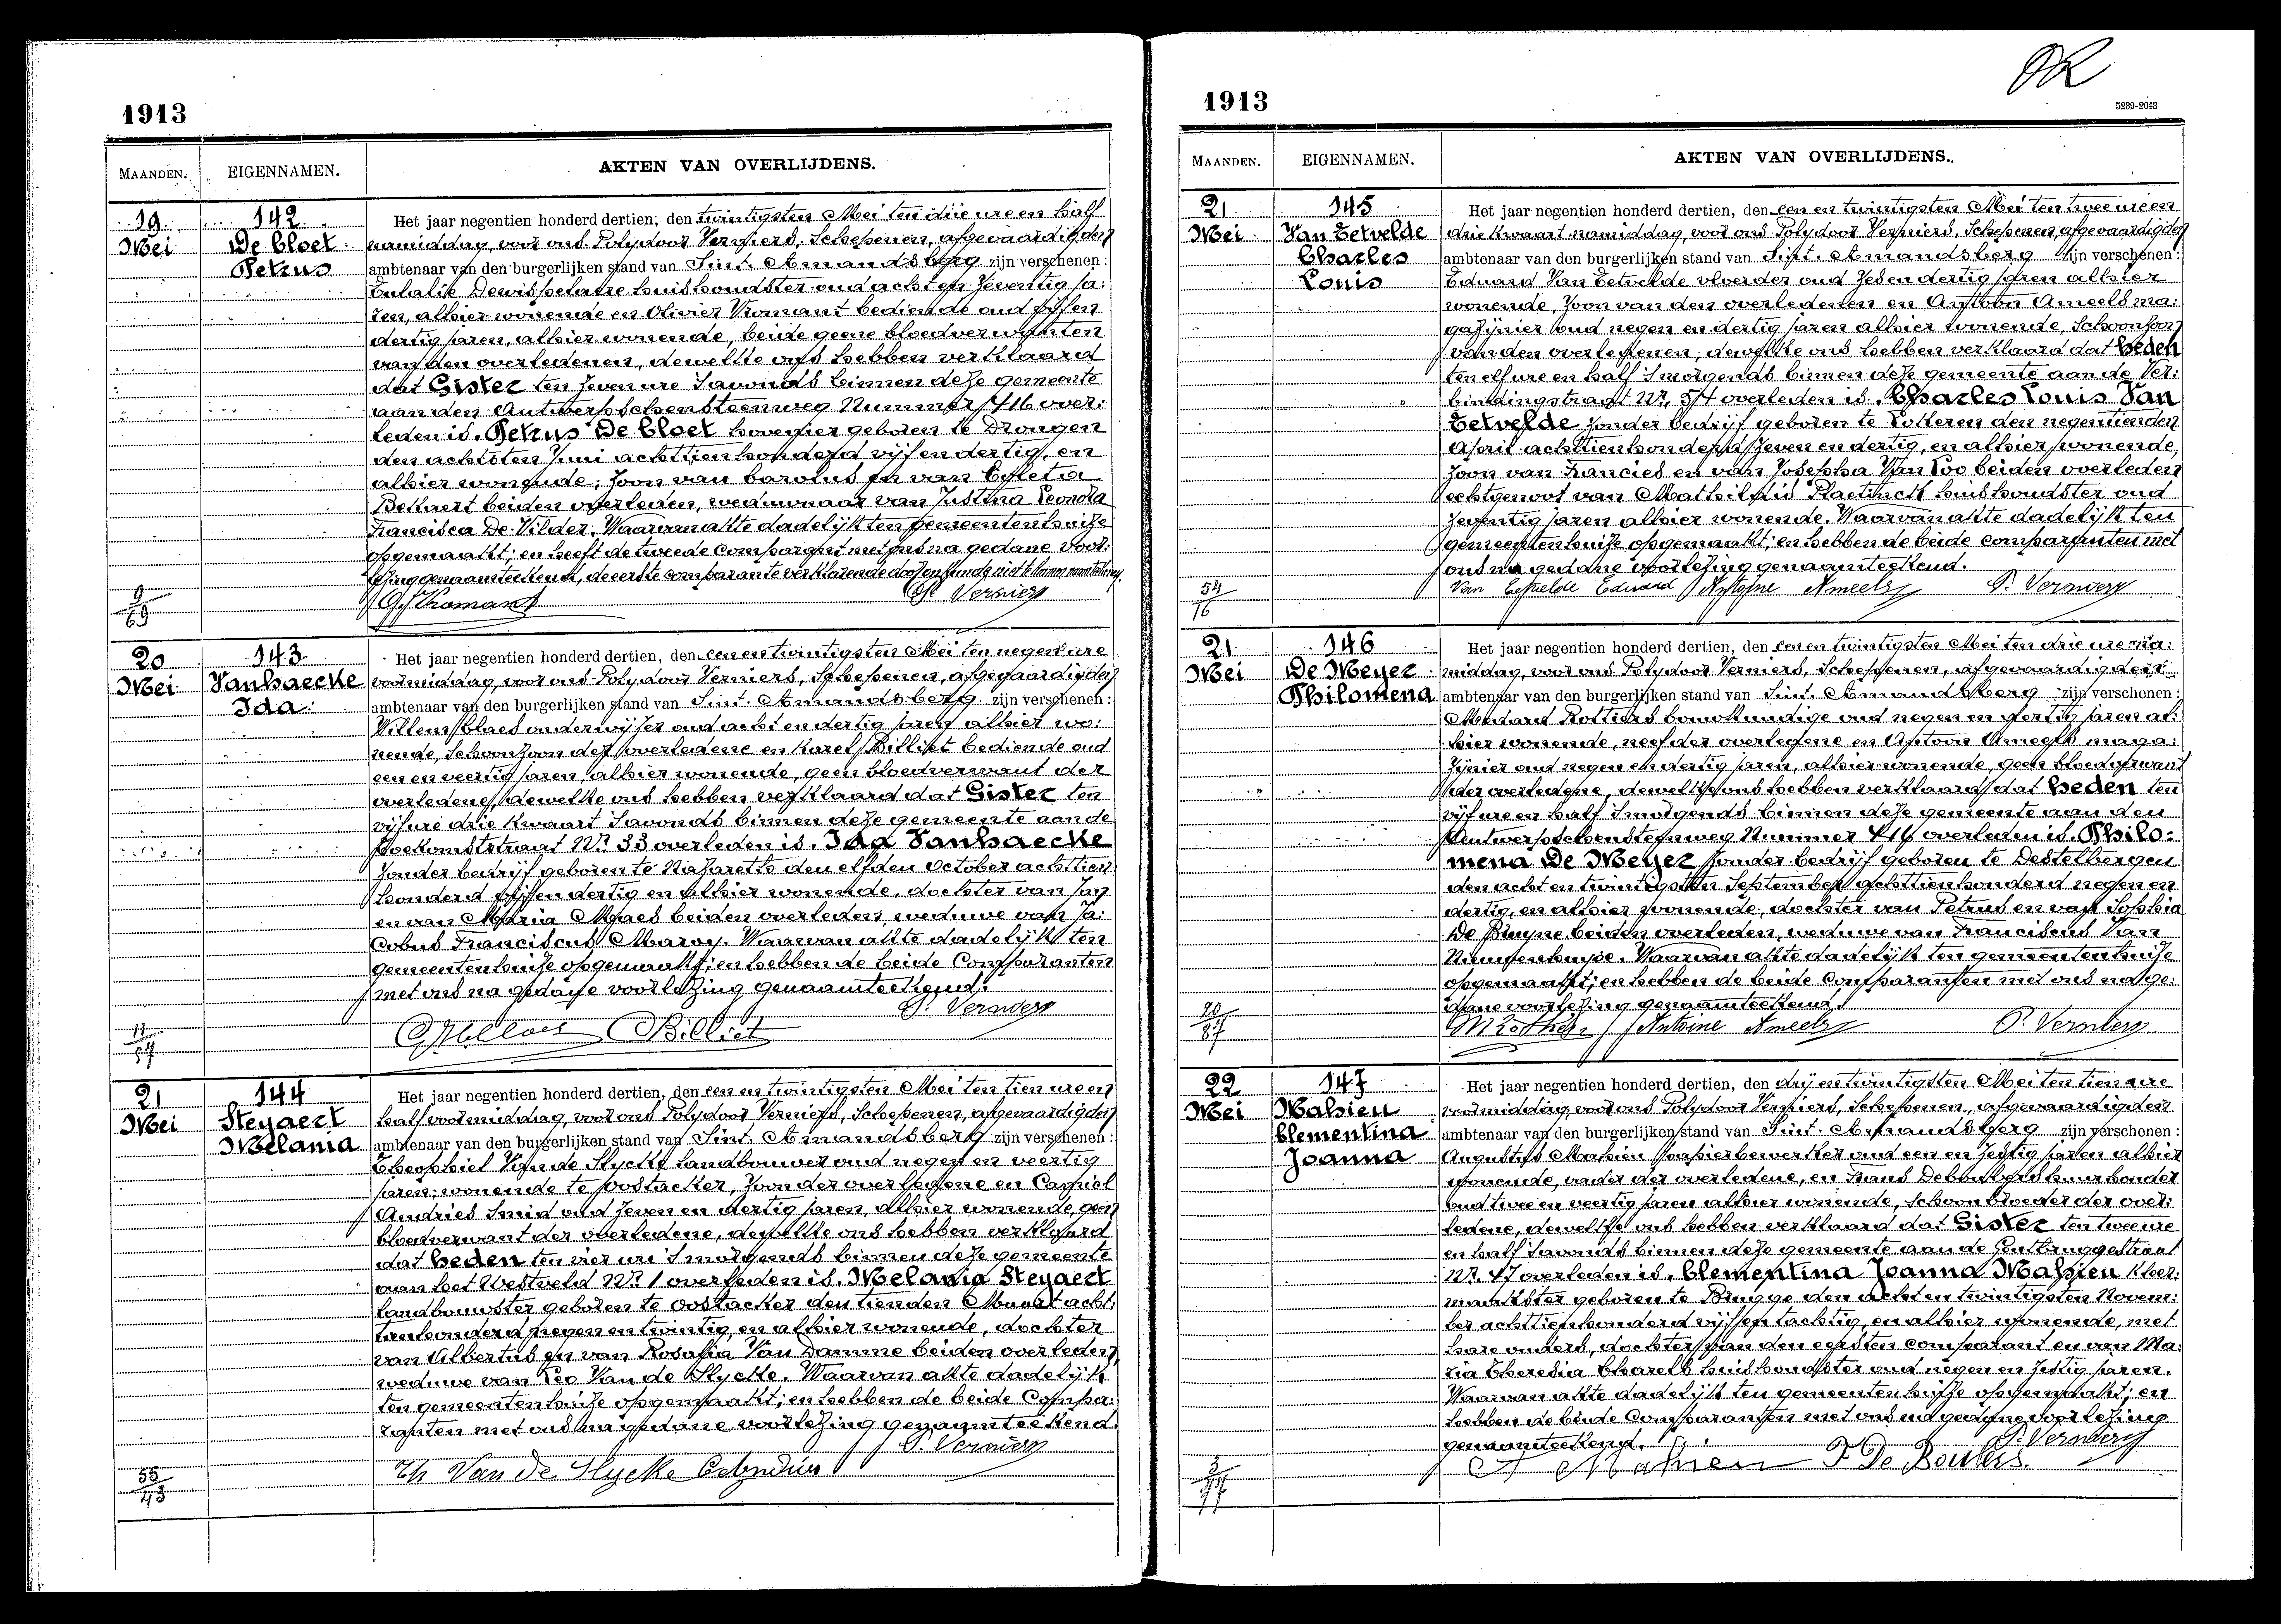 1913
MAANDEN.
EIGENNAMEN.
AKTEN VAN OVERLIJDENS.
19 Mei
142
De Cloet
Petrus
Het jaar negentien honderd dertien, den twintigsten Mei ten drie ure en half
namiddag, voor ons Polydoor Verniers, Schepenen, afgevaardigden
ambtenaar van den burgerlijken stand van Sint-Amandsberg zijn verschenen:
Eulalie Dewispelaere huishoudster oud acht en zeventig ja:
ren, alhier wonende en Olivier Vromant bediende oud vijf en
dertig jaren, alhier wonende, beide geene bloedverwanten
van den overledenen, dewelke ons hebben verklaard
dat Gister ten zeven ure 's avonds binnen deze gemeente
aan den Antwerpschensteenweg Nummer 416 over:
leden is, Petrus De Cloet hovenier geboren te Drongen
den achtsten Juni achttienhonderd vijf en dertig, en
alhier wonende, zoon van Carolus en van Coleta
Bekaert beiden overleden, weduwnaar van Justina Leonora
Francisca De Vilder. Waarvan akte dadelijk ten gemeentenhuize
opgemaakt; en heeft de tweede comparant met ons na gedane voor:
lezing genaamteekend, de eerste comparante verklarende door onkunde niet te kunnen naamteekenen.
O. Vromant P. Verniers
9/69
20 Mei
143
Vanhaecke
Ida
Het jaar negentien honderd dertien, den een en twintigsten Mei ten negen ure
voormiddag, voor ons Polydoor Verniers, Schepenen, afgevaardigden
ambtenaar van den burgerlijken stand van Sint-Amandsberg zijn verschenen:
Willems Claes onderwijzer oud acht en dertig jaren alhier wo:
nende, schoonzoon der overledene en Karel Billiet bediende oud
een en veertig jaren, alhier wonende, geen bloedverwant der
overledene, dewelke ons hebben verklaard dat Gister ten
vijf ure drie kwaart 's avonds binnen deze gemeente aan de
Toekomststraat Nr. 33 overleden is, Ida Vanhaecke
zonder bedrijf geboren te Nazareth den elfden October achttien
honderd vijf en dertig en alhier wonende, dochter van Jan
en van Maria Maes beiden overleden, weduwe van Ja:
cobus Franciscus Maroy. Waarvan akte dadelijk ten
gemeentenhuize opgemaakt; en hebben de beide Comparanten
met ons na gedane voorlezing genaamteekend.
P. Verniers
Billiet
11/87
21 Mei
144
Steyaert
Melania
Het jaar negentien honderd dertien, den een en twintigsten Mei ten tien ure en
half voormiddag, voor ons Polydoor Verniers, Schepenen, afgevaardigden
ambtenaar van den burgerlijken stand van Sint-Amandsberg zijn verschenen:
Theophiel Van de Slycke landbouwer oud negen en veertig
jaren, wonende te Oostacker, zoon der overledene en Camiel
Andries Smid oud zeven en dertig jaren, alhier wonende, geen
bloedverwant der overledene, dewelke ons hebben verklaard
dat heden ten vier ure 's morgends binnen deze gemeente
aan het Westveld Nr. 1 overleden is, Melania Steyaert
landbouwster geboren te Oostacker den tienden Maart acht:
tienhonderd negen en twintig, en alhier wonende, dochter
van Albertus en van Rosalia Van Damme beiden overleden,
weduwe van Leo Van de Slycke. Waarvan akte dadelijk
ten gemeentenhuize opgemaakt; en hebben de beide Compa:
ranten met ons na gedane voorlezing genaamteekend.
P. Verniers
Th Van De Slycke
55/43
1913
5239-2043
MAANDEN.
EIGENNAMEN.
AKTEN VAN OVERLIJDENS.
21 Mei
145
Van Eetvelde
Charles
Louis
Het jaar negentien honderd dertien, den een en twintigsten Mei ten twee ure en
drie kwaart namiddag, voor ons Polydoor Verniers, Schepenen, afgevaardigden
ambtenaar van den burgerlijken stand van Sint-Amandsberg zijn verschenen:
Eduard Van Eetvelde vloerder oud zes en dertig jaren alhier
wonende, zoon van den overledenen en Antoon Ameels ma:
gazijnier oud negen en dertig jaren alhier wonende, schoonzoon
van den overledenen, dewelke ons hebben verklaard dat heden
ten elf ure en half 's morgends binnen deze gemeente aan de Ver:
bindingstraat Nr. 54 overleden is, Charles Louis Van
Eetvelde zonder bedrijf geboren te Lokeren den negentienden
April achttienhonderd zeven en dertig, en alhier wonende,
zoon van Francies en van Josepha Van Loo beiden overleden
echtgenoot van Mathildis Plaetinck huishoudster oud
zeventig jaren alhier wonende. Waarvan akte dadelijk ten
gemeentenhuize opgemaakt; en hebben de beide comparanten met
ons na gedane voorlezing genaamteekend.
Van Eetvelde Eduard Antoine Ameels P. Verniers
54/16
21 Mei
146
De Meyer
Philomena
Het jaar negentien honderd dertien, den een en twintigsten Mei ten drie ure na:
middag, voor ons Polydoor Verniers, Schepenen, afgevaardigden
ambtenaar van den burgerlijken stand van Sint-Amandsberg zijn verschenen:
Medard Rottiers bouwkundige oud negen en dertig jaren al:
hier wonende, neef der overledene en Antoon Ameels maga:
zijnier oud negen en dertig jaren, alhier wonende, geen bloedverwant
der overledene, dewelke ons hebben verklaard dat heden ten
vijf ure en half 's morgends binnen deze gemeente aan den
Antwerpschensteenweg Nummer 416 overleden is, Philo:
mena De Meyer zonder bedrijf geboren te Destelbergen
den acht en twintigsten September achttienhonderd negen en
dertig, en alhier wonende, dochter van Petrus en van Sophia
De Bruyne beiden overleden, weduwe van Franciscus Van
Nieuwenhuyse. Waarvan akte dadelijk ten gemeentenhuize
opgemaakt; en hebben de beide Comparanten met ons na ge:
dane voorlezing genaamteekend.
Antoine Ameels P. Verniers
20/87
22 Mei
147
Mahieu
Clementina
Joanna
Het jaar negentien honderd dertien, den drij en twintigsten Mei ten tien ure
voormiddag, voor ons Polydoor Verniers, Schepenen, afgevaardigden
ambtenaar van den burgerlijken stand van Sint-Amandsberg zijn verschenen:
Augustus Mahieu papierbewerker oud een en zestig jaren alhier
wonende, vader der overledene, en Frans Debeulers huurhouder
oud twee en veertig jaren alhier wonende, schoonbroeder der over:
ledene, dewelke ons hebben verklaard dat Gister ten twee ure
en half 's avonds binnen deze gemeente aan de Gentbruggestraat
Nr. 47 overleden is, Clementina Joanna Mahieu kleer:
maakster geboren te Brugge den acht en twintigsten Novem:
ber achttienhonderd vijf en tachtig, en alhier wonende, met
hare ouders, dochter van den eersten comparant en van Ma:
ria Theresia Charels huishoudster oud negen en zestig jaren.
Waarvan akte dadelijk ten gemeentenhuize opgemaakt; en
hebben de beide Comparanten met ons na gedane voorlezing
genaamteekend. P. Verniers
A Mahieu F De Beulers